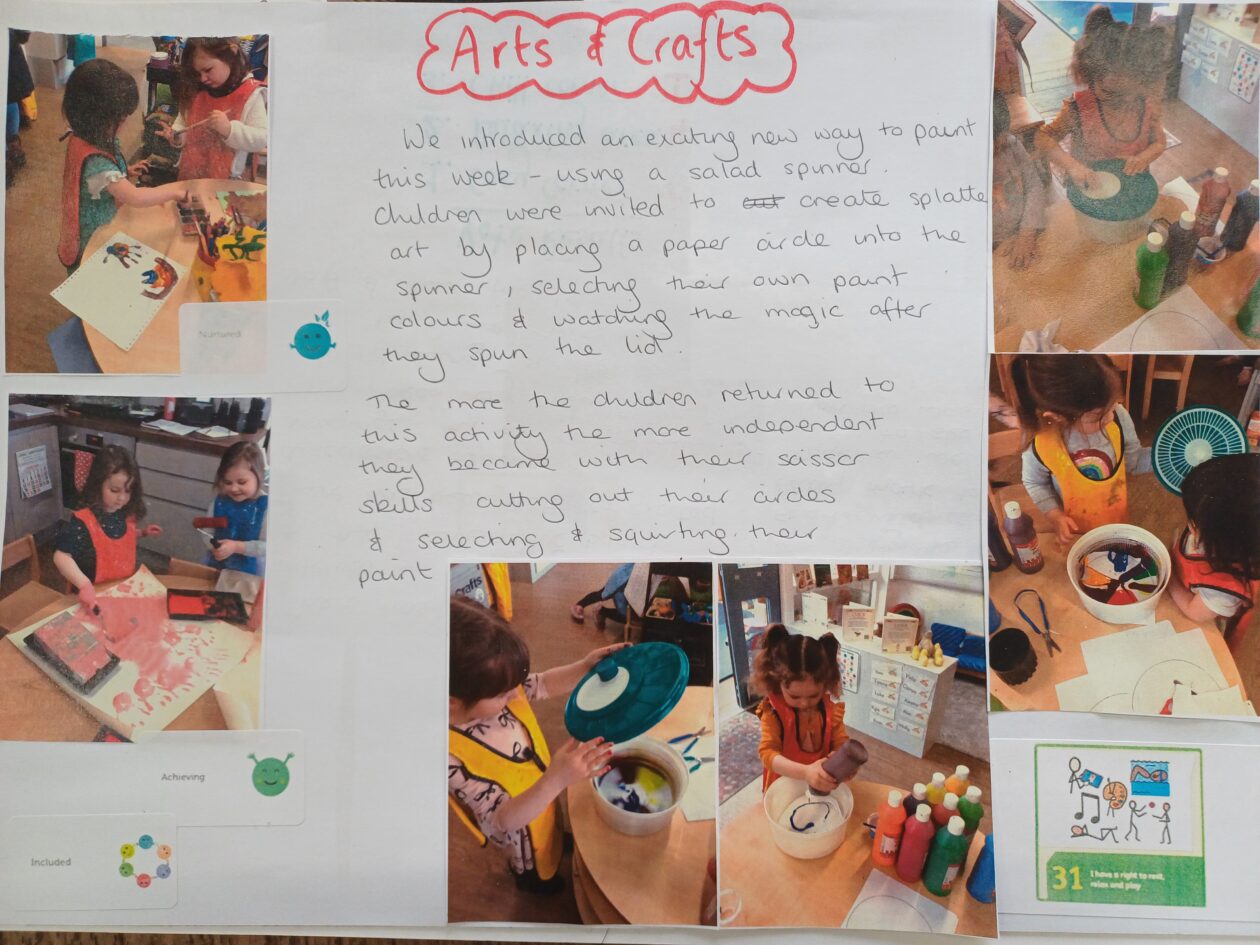 Arts & Crafts
We introduced an exciting new way to paint
this week - using a salad spinner.
Children were invited to create splatte
art by placing a paper circle into the
spinner, selecting their own paint
colours & watching the magic after
they spun the lid.
The more the children returned to
this activity the more independent
they became with their scissor
skills cutting out their circles
& selecting & squirting their
paint
Nurtured
Achieving
Included
Crafts
31 I have a right to rest,
relax and play